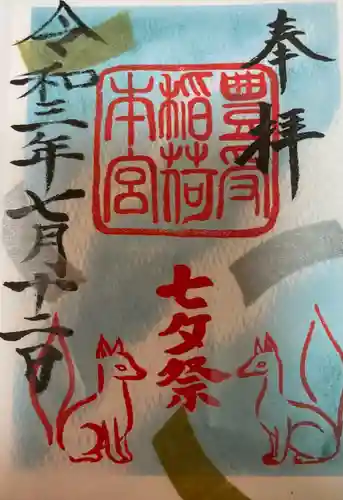 奉拝
豊受
稲荷
本宮
七夕祭
令和三年七月十二日